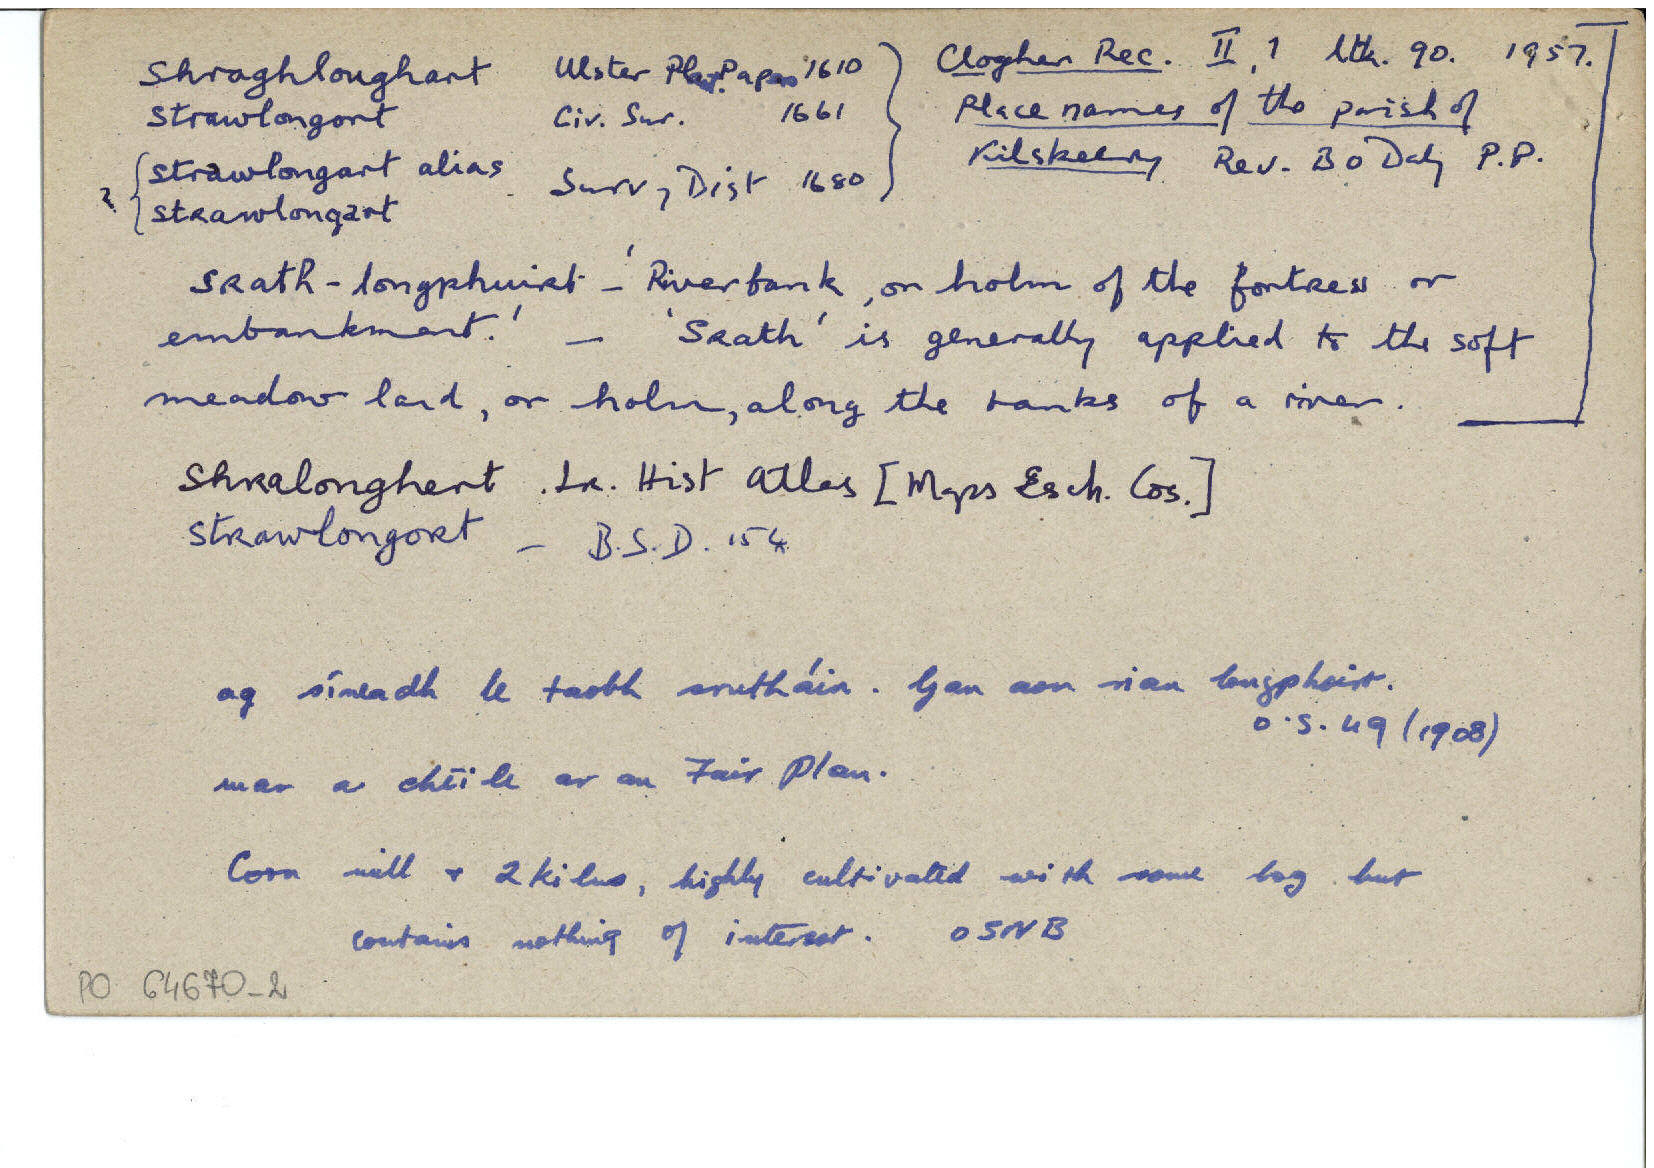 Shraghloughart Ulster Plan. Papers 1610 } Clogher Rec. II, 1 lth. 90. 1957.
Strawlongort Civ. Sur. 1661 Place names of the parish of
? { Strawlongart alias Surv, Dist 1680 Kilskeery Rev. B O Daly P.P.
Strawlongart
Srath-longphuirt - 'Riverbank, or holm of the fortress or
embankment.' - 'Srath' is generally applied to the soft
meadow land, or holm, along the banks of a river.
Shralonghert . Ir. Hist Atlas [Maps Esch. Cos.]
Strawlongort - B.S.D. 154
ag síneadh le taobh srutháin. Gan aon rian longphoirt.
O.S. 49 (1908)
mar a chéile ar an Fair Plan.
Corn mill + 2 kilns, highly cultivated with some bog but
contains nothing of interest. OSNB
PO 64670-2